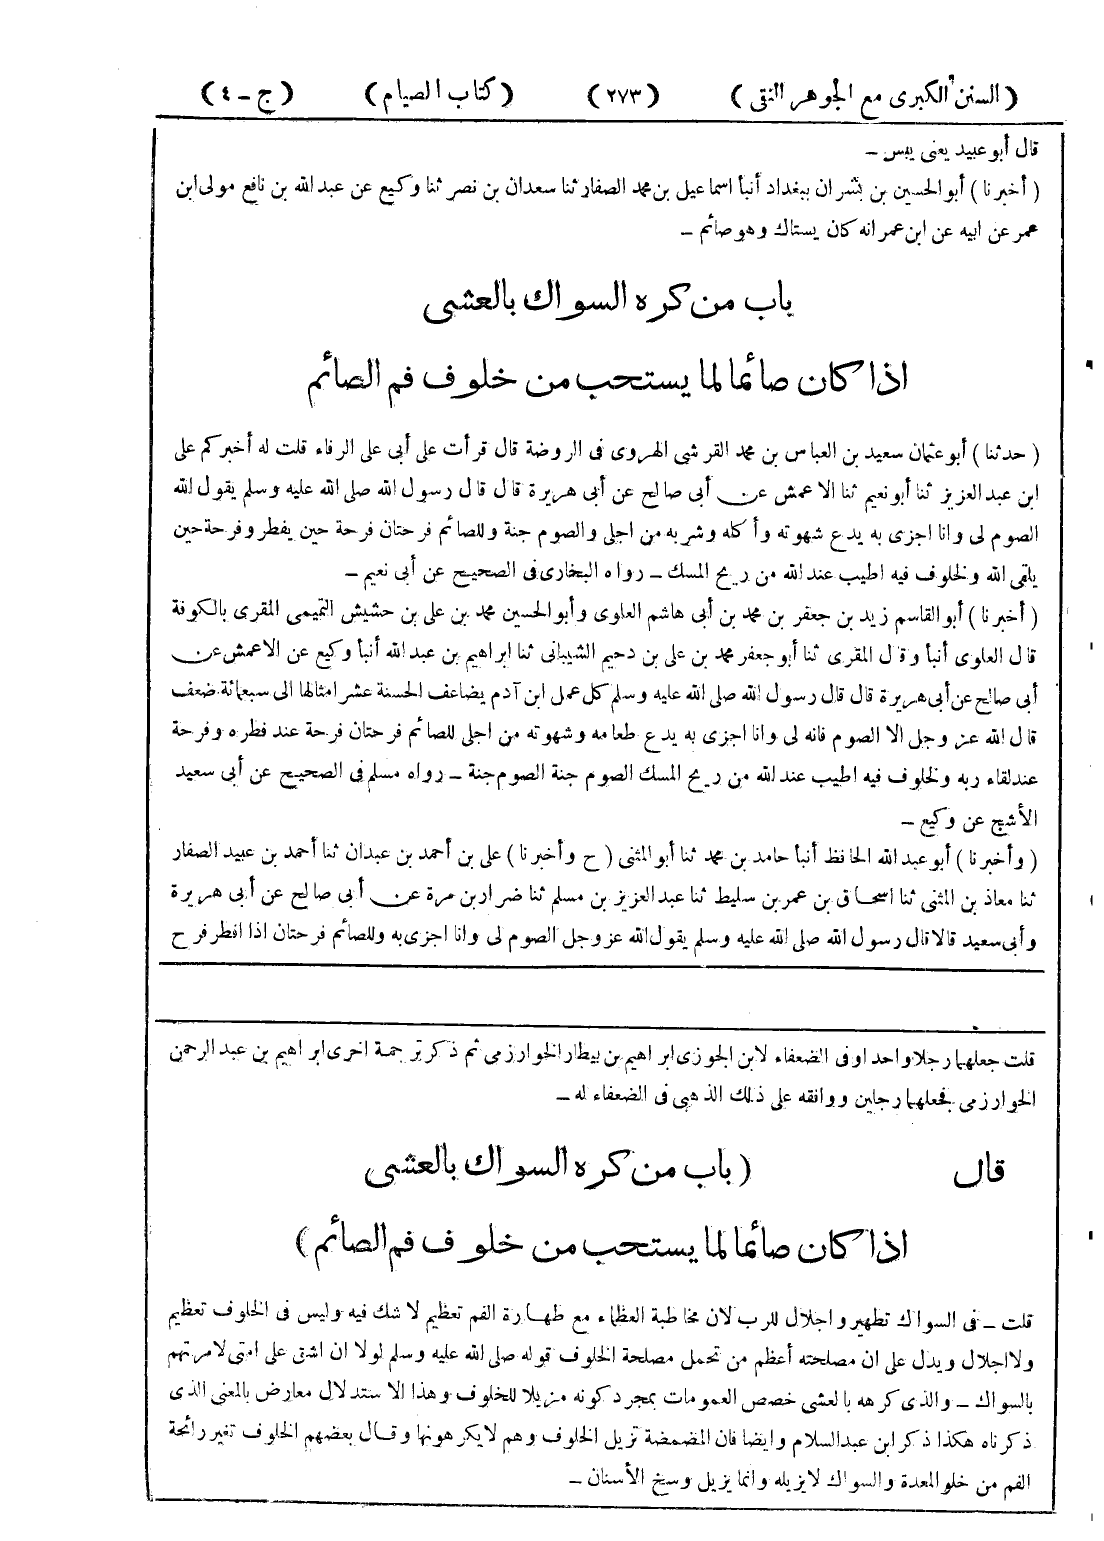 (السنن الكبرى مع الجوهر النقى) (٢٧٣) (كتاب الصيام) (ج - ٤)
قال أبو عبيد يعنى يبس -
(أخبرنا) أبو الحسين بن بشران ببغداد أنبأ اسماعيل بن محمد الصفار ثنا سعدان بن نصر ثنا وكيع عن عبد الله بن نافع مولى ابن
عمر عن ابيه عن ابن عمر انه كان يستاك وهو صائم -
باب من كره السواك بالعشى
اذا كان صائما لما يستحب من خلوف فم الصائم
(حدثنا) أبو عثمان سعيد بن العباس بن محمد القرشى الهروى فى الروضة قال قرأت على أبى على الرفاء قلت له أخبركم على
ابن عبد العزيز ثنا أبو نعيم ثنا الاعمش عن أبى صالح عن أبى هريرة قال قال رسول الله صلى الله عليه وسلم يقول الله
الصوم لى وانا اجزى به يدع شهوته وأكله وشربه من اجلى والصوم جنة وللصائم فرحتان فرحة حين يفطر وفرحة حين
يلقى الله ولخلوف فيه اطيب عند الله من ريح المسك - رواه البخارى فى الصحيح عن أبى نعيم -
(أخبرنا) أبو القاسم زيد بن جعفر بن محمد بن أبى هاشم العلوى وأبو الحسين محمد بن على بن حشيش التميمى المقرى بالكوفة
قال العلوى أنبأ وقال المقرى ثنا أبو جعفر محمد بن على بن دحيم الشيبانى ثنا ابراهيم بن عبد الله أنبأ وكيع عن الاعمش عن
أبى صالح عن أبى هريرة قال قال رسول الله صلى الله عليه وسلم كل عمل ابن آدم يضاعف الحسنة عشر امثالها الى سبعمائة ضعف
قال الله عز وجل الا الصوم فانه لى وانا اجزى به يدع طعامه وشهوته من اجلى للصائم فرحتان فرحة عند فطره وفرحة
عند لقاء ربه ولخلوف فيه اطيب عند الله من ريح المسك الصوم جنة الصوم جنة - رواه مسلم فى الصحيح عن أبى سعيد
الأشج عن وكيع -
(وأخبرنا) أبو عبد الله الحافظ أنبأ حامد بن محمد ثنا أبو المثنى (ح وأخبرنا) على بن أحمد بن عبدان ثنا أحمد بن عبيد الصفار
ثنا معاذ بن المثنى ثنا اسحاق بن عمر بن سليط ثنا عبد العزيز بن مسلم ثنا ضرار بن مرة عن أبى صالح عن أبى هريرة
وأبى سعيد قالا قال رسول الله صلى الله عليه وسلم يقول الله عز وجل الصوم لى وانا اجزى به وللصائم فرحتان اذا افطر فرح
قلت جعلهما رجلا واحدا وفى الضعفاء لابن الجوزى ابراهيم بن بيطار الخوارزمى ثم ذكر ترجمة اخرى ابراهيم بن عبد الرحمن
الخوارزمى فجعلهما رجلين ووافقه على ذلك الذهبى فى الضعفاء له -
قال (باب من كره السواك بالعشى
اذا كان صائما لما يستحب من خلوف فم الصائم)
قلت - فى السواك تطهير واجلال للرب لان مخاطبة العظماء مع طهارة الفم تعظيم لا شك فيه وليس فى الخلوف تعظيم
ولا اجلال ويدل على ان مصلحته أعظم من تحمل مصلحة الخلوف قوله صلى الله عليه وسلم لولا ان اشق على امتى لامرتهم
بالسواك - والذى كرهه بالعشى خصص العمومات بمجرد كونه مزيلا للخلوف وهذا الاستدلال معارض بالمعنى الذى
ذكرناه هكذا ذكر ابن عبد السلام وايضا فان المضمضة تزيل الخلوف وهم لا يكرهونها وقال بعضهم الخلوف تغير رائحة
الفم من خلو المعدة والسواك لا يزيله وانما يزيل وسخ الأسنان -